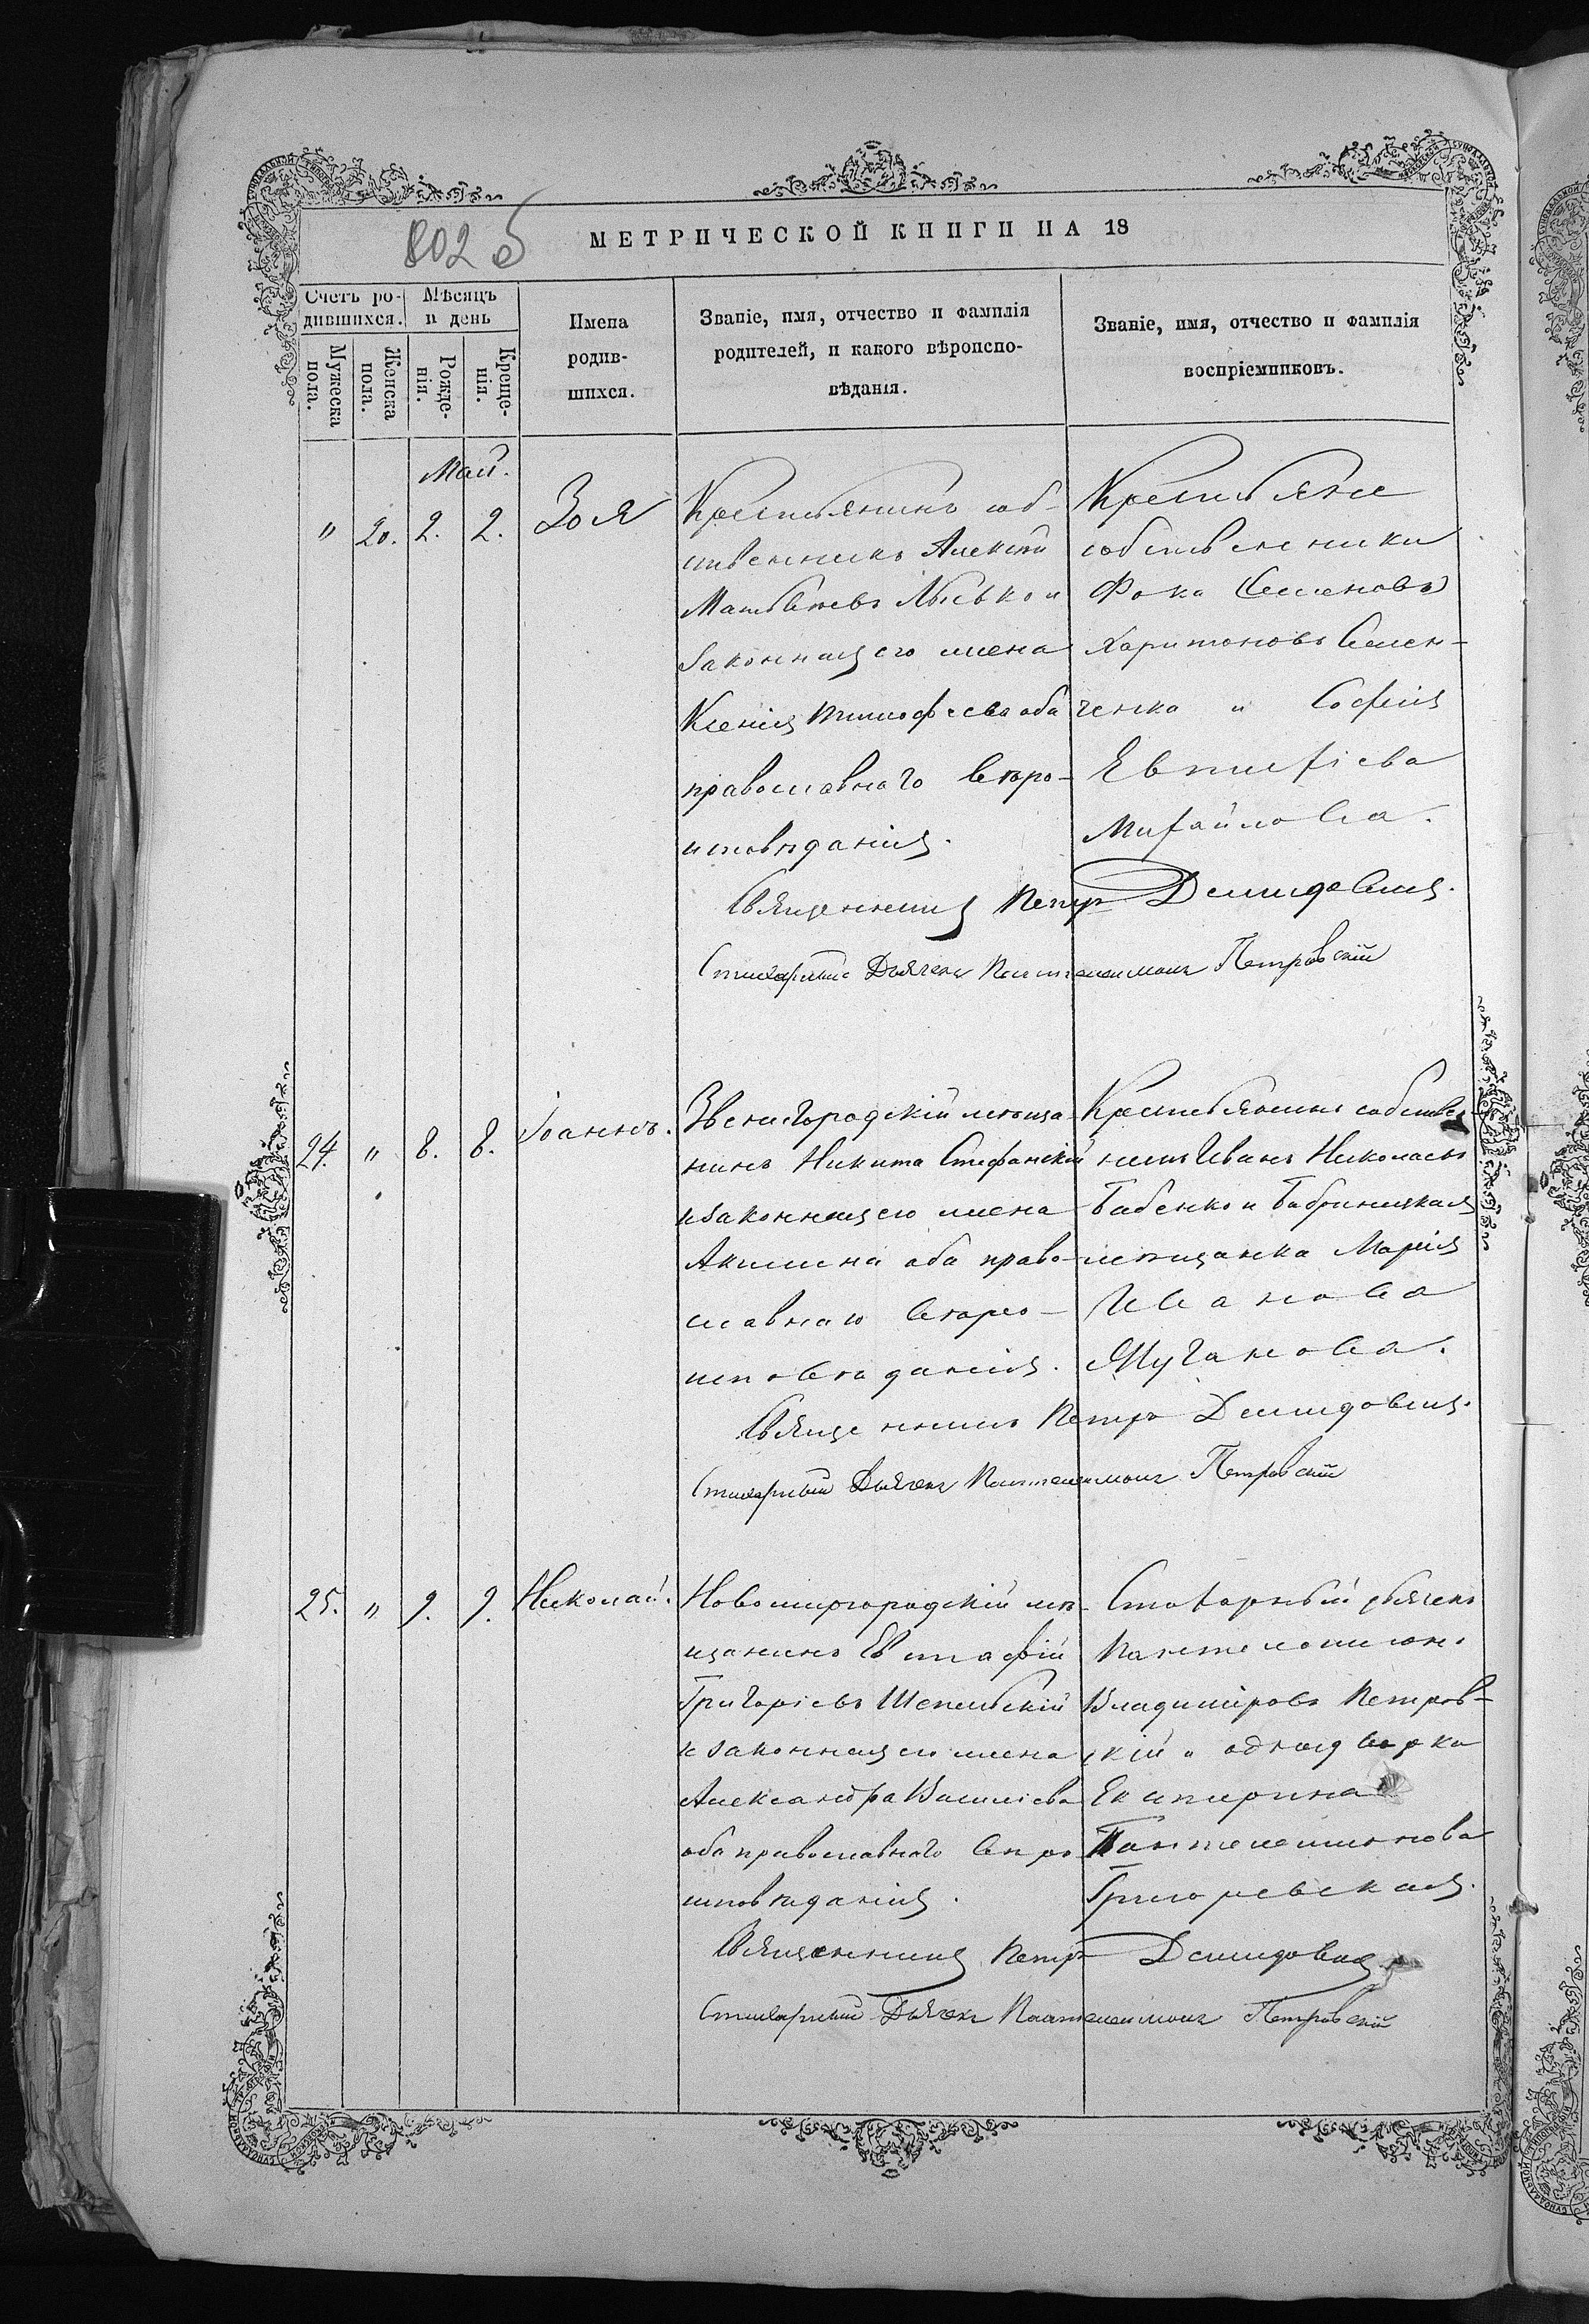 802 б
МЕТРИЧЕСКОЙ КНИГИ НА 18
Счетъ родившихся.
Мѣсяцъ и день
Имена родившихся.
Званіе, имя, отчество и фамилія родителей, и какого вѣроисповѣданія.
Званіе, имя, отчество и фамилія воспріемниковъ.
Мужеска пола.
Женска пола.
Рожденія.
Крещенія.
Май.
" 20. 2. 2. Зоя
Крестьянинъ соб-
ственникъ Алексій
Матвѣевъ и
законная его жена
Ксенія Тимофеева оба
православнаго вѣро-
исповѣданія.
Крестьяне
собственники
Фока Семеновъ
Харитоновъ Семен-
ченко и Софія
Евтихіева
Михайлова.
Священникъ Петръ Демидовичъ.
Стихарный Дьячекъ Пантелеимонъ Петровскій
24. " 8. 8. Іоаннъ.
Звенигородскій мѣща-
нинъ Никита Стефанскій
и законная его жена
Акилина оба право-
славнаго вѣро-
исповѣданія.
Крестьянинъ собствен-
никъ Иванъ Николаевъ
Бабенко и Бобринецкая
мѣщанка Марія
Иванова
Жуганова.
Священникъ Петръ Демидовичъ.
Стихарный Дьячекъ Пантелеимонъ Петровскій
25. " 9. 9. Николай.
Новомиргородскій мѣ-
щанинъ Евстафій
Григоріевъ Шепельскій
и законная его жена
Александра Василіева
оба православнаго вѣро
исповѣданія.
Стихарный дьячекъ
Пантелеимонъ
Владиміровъ Петров-
скій и однодворка
Екатерина
Пантелеимонова
Григоревская.
Священникъ Петръ Демидовичъ.
Стихарный Дьячекъ Пантелеимонъ Петровскій